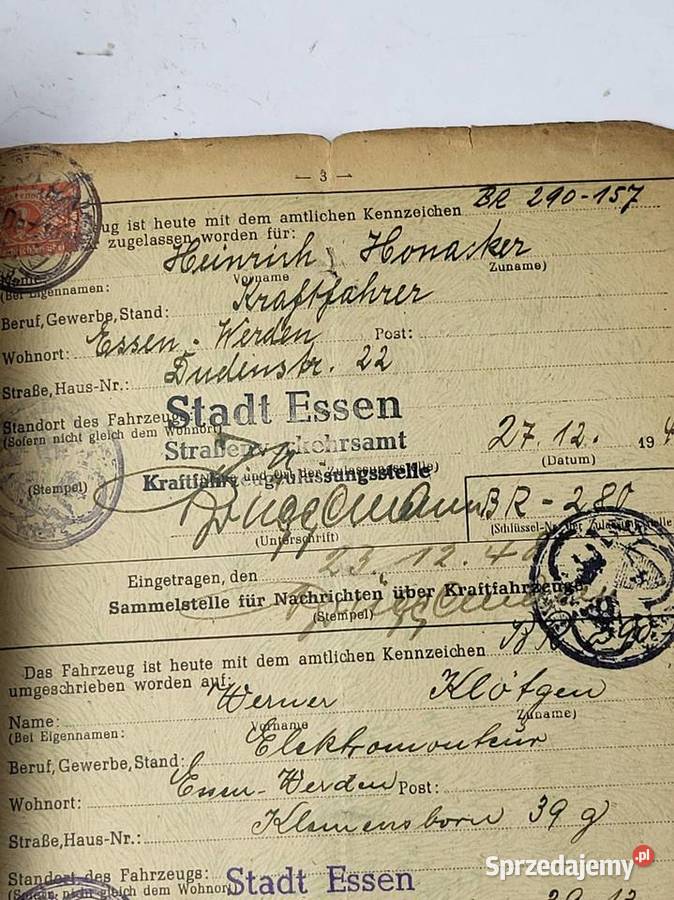 — 3 —
ug ist heute mit dem amtlichen Kennzeichen BR 290-157
zugelassen worden für:
Heinrich Honacker
Name:
Vorname Zuname)
(Bei Eigennamen:
Beruf, Gewerbe, Stand: Kraftfahrer
Wohnort: Essen-Werden Post:
Straße, Haus-Nr.: Dudenstr. 22
Standort des Fahrzeugs
(Sofern nicht gleich dem Wohnort)
Stadt Essen
Straßenverkehrsamt
27.12. 194
(Datum)
Kraftfahrzeugzulassungsstelle
(Stempel)
BR-280
(Unterschrift)
(Schlüssel-Nr. der Zulassungsstelle)
Eingetragen, den 23.12.4
Sammelstelle für Nachrichten über Kraftfahrzeuge
(Stempel)
Das Fahrzeug ist heute mit dem amtlichen Kennzeichen BR
umgeschrieben worden auf:
Werner Klötgen
Name:
Vorname Zuname)
(Bei Eigennamen:
Beruf, Gewerbe, Stand: Elektromonteur
Wohnort: Essen-Werden Post:
Straße, Haus-Nr.: Klemensborn 39 g
Standort des Fahrzeugs:
(Sofern nicht gleich dem Wohnort)
Stadt Essen
Sprzedajemy.pl